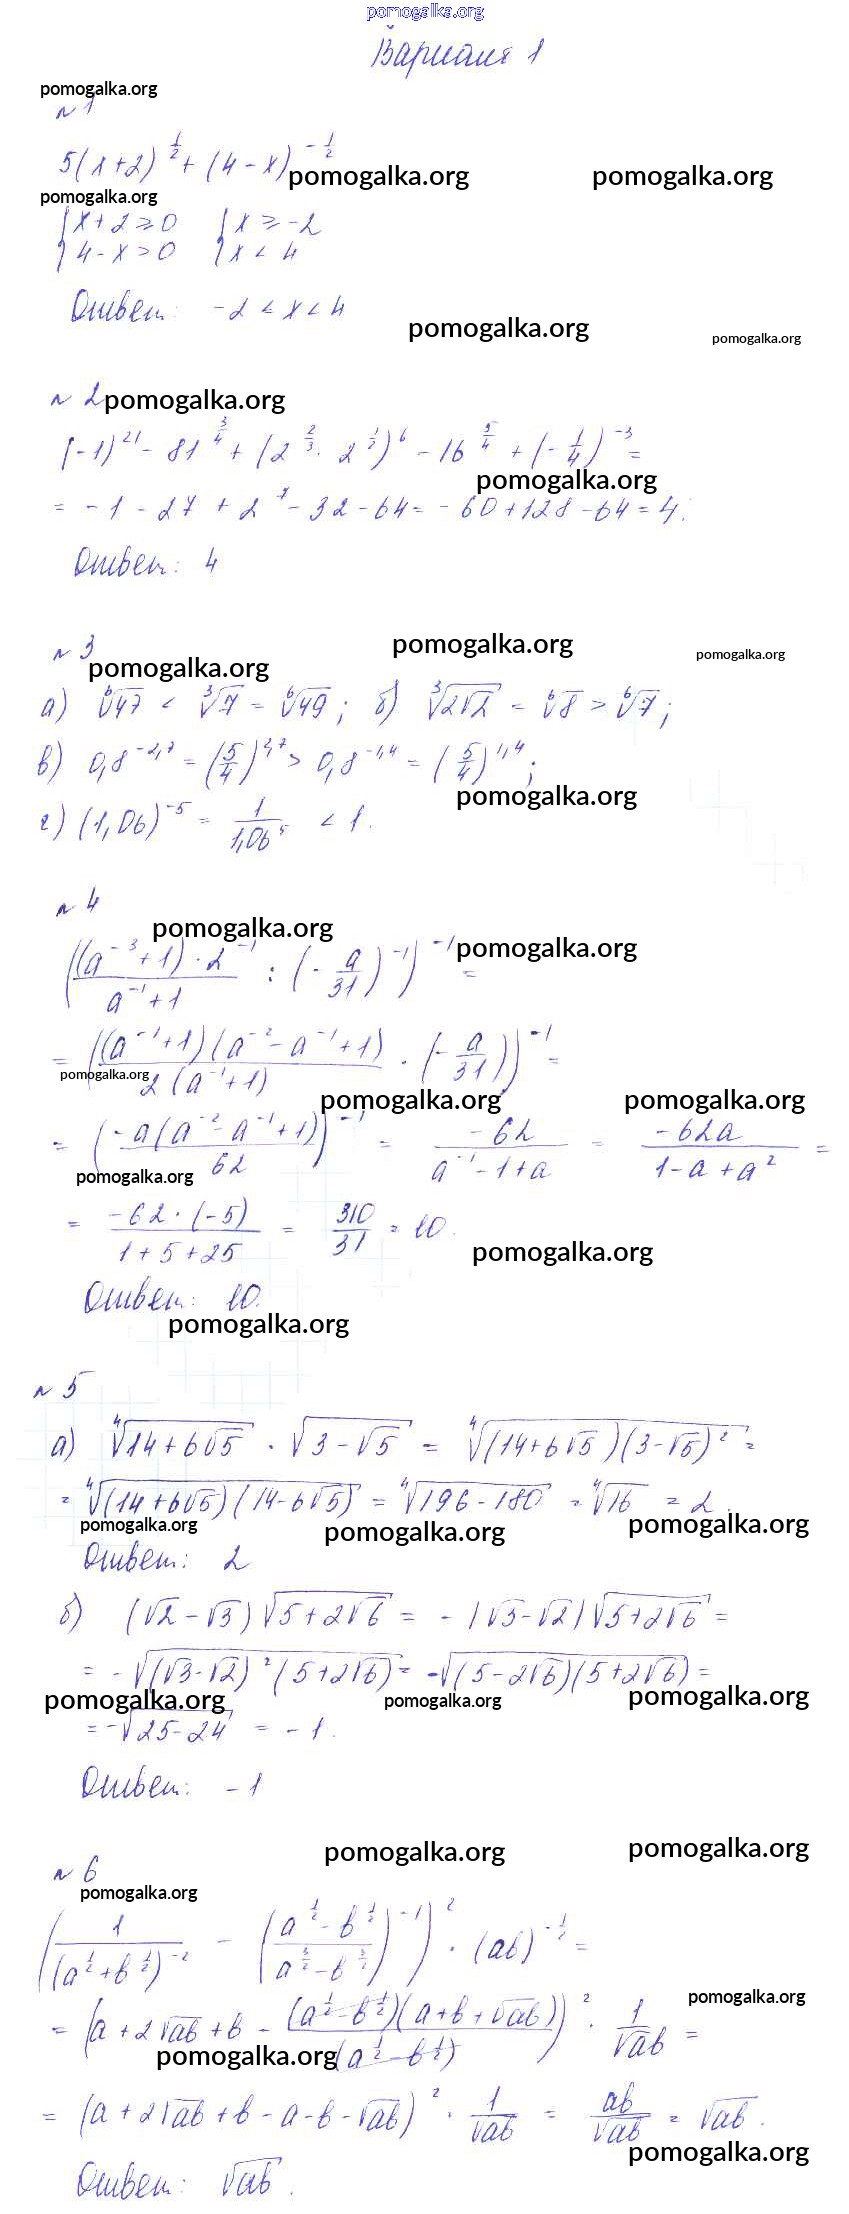 pomogalka.org
Вариант 1
pomogalka.org
№ 1
5(x+2)^{1/2} + (4-x)^{-1/2}
pomogalka.org pomogalka.org
pomogalka.org
{x+2 ≥ 0 {x ≥ -2
{4-x > 0 {x < 4
Ответ: -2 < x < 4
pomogalka.org pomogalka.org
№ 2 pomogalka.org
(-1)^{21} - 81^{3/4} + (2^{2/3} · 2^{1/2})^6 - 16^{5/4} + (-1/4)^{-3} =
pomogalka.org
= -1 - 27 + 2^7 - 32 - 64 = -60 + 128 - 64 = 4;
Ответ: 4
№ 3 pomogalka.org pomogalka.org
pomogalka.org
а) ⁶√47 < ³√7 = ⁶√49; б) ³√(2√2) = ⁶√8 > ⁶√7;
в) 0,8^{-2,7} = (5/4)^{2,7} > 0,8^{-1,4} = (5/4)^{1,4};
pomogalka.org
г) (1,06)^{-5} = 1/1,06^5 < 1.
№ 4
pomogalka.org pomogalka.org
((a^{-3}+1) · 2^{-1} / (a^{-1}+1) : (-a/31)^{-1})^{-1} =
= ((a^{-1}+1)(a^{-2}-a^{-1}+1) / 2(a^{-1}+1) · (-a/31))^{-1} =
pomogalka.org pomogalka.org pomogalka.org
= (-a(a^{-2}-a^{-1}+1) / 62)^{-1} = -62 / (a^{-1}-1+a) = -62a / (1-a+a²) =
pomogalka.org
= -62·(-5) / (1+5+25) = 310/31 = 10.
pomogalka.org
Ответ: 10.
pomogalka.org
№ 5
а) ⁴√(14+6√5) · √(3-√5) = ⁴√((14+6√5)(3-√5)²) =
= ⁴√((14+6√5)(14-6√5)) = ⁴√(196-180) = ⁴√16 = 2.
pomogalka.org pomogalka.org pomogalka.org
Ответ: 2
б) (√2-√3)√(5+2√6) = -(√3-√2)√(5+2√6) =
= -√((√3-√2)²(5+2√6)) = -√((5-2√6)(5+2√6)) =
pomogalka.org pomogalka.org pomogalka.org
= -√(25-24) = -1.
Ответ: -1
pomogalka.org pomogalka.org
№ 6
pomogalka.org
(1 / (a^{1/2}+b^{1/2})^{-2} - ((a^{1/2}-b^{1/2}) / (a^{3/2}-b^{3/2}))^{-1})² · (ab)^{-1/2} =
pomogalka.org
= (a+2√ab+b - (a^{1/2}-b^{1/2})(a+b+√ab) / (a^{1/2}-b^{1/2}))² · 1/√ab =
pomogalka.org
= (a+2√ab+b-a-b-√ab)² · 1/√ab = ab/√ab = √ab.
pomogalka.org
Ответ: √ab.